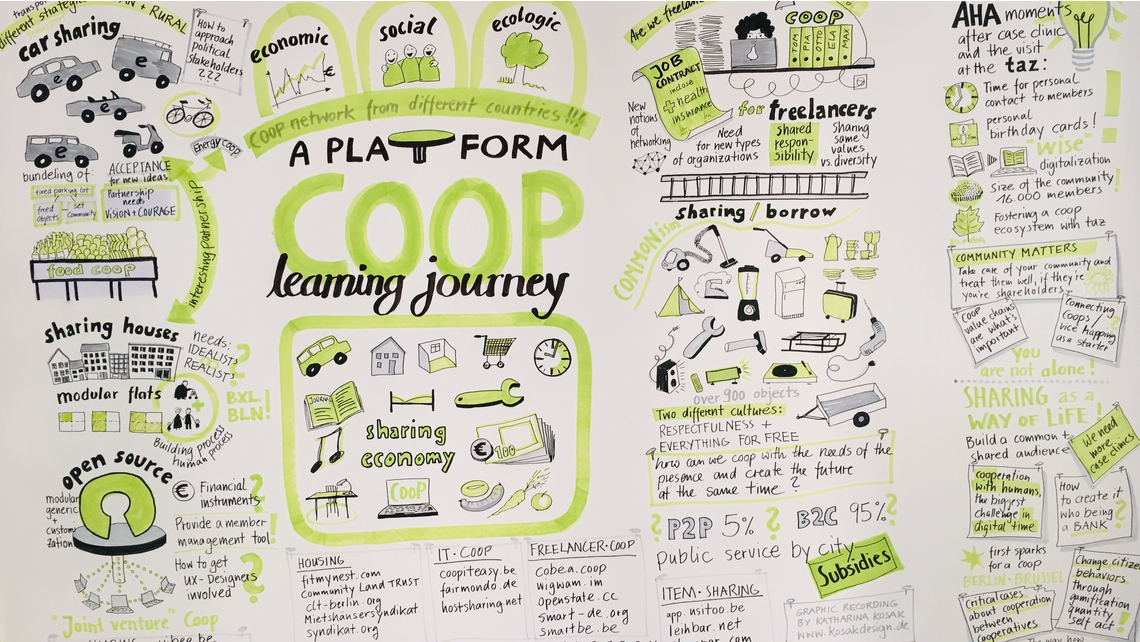 different strategies
+ RURAL
car sharing
e
e
e
e
How to
approach
political
stakeholders
???
Energy coop
bundeling of:
fixed parking lot
fixed
objects
set
community
ACCEPTANCE
for new ideas
Partnership
needs
VISION + COURAGE
interesting partnership
food coop
sharing houses
needs:
IDEALIST
REALIST
?
modular flats
+
BXL
BLN!
Building process
human process
open source
modular
generic
+
custom-
ization
€ Financial
instruments
?
Provide a member
management tool!
How to get
UX-Designers
involved
?
"Joint venture" Coop
economic
€
social
ecologic
COOP network from different countries!!!
A PLATFORM
COOP
learning journey
JOURNAL
sharing
economy
€
100
COOP
HOUSING
fitmynest.com
Community Land TRUST
clt-berlin.org
Mietshäusersyndikat
syndikat.org
IT-COOP
coopiteasy.be
fairmondo.de
hostsharing.net
FREELANCER-COOP
cobea.coop
wigwam.im
openstate.cc
smart-de.org
smartbe.be
Are we freelan
COOP
TOM
PIA
OTTO
ELA
MAX
JOB
CONTRACT
include
+ health
insurance
New
notions
of
networking
for freelancers
Need
for new types
of organizations
Shared
respon-
sibility
Sharing
same
values
vs. diversity
sharing / borrow
COMMONisms
over 900 objects
Two different cultures:
RESPECTFULNESS +
EVERYTHING FOR FREE
how can we coop with the needs of the
presence and create the future
at the same time ?
? P2P 5% ? B2C 95% ?
public service by city
Subsidies
ITEM-SHARING
app.usitoo.be
leihbar.net
GRAPHIC RECORDING
BY KATHARINA KOSAK
www.kosakdesign.de
AHA moments
after case clinic
and the visit
at the taz:
Time for personal
contact to members
personal
birthday cards!
"wise"
digitalization
Size of the community
16.000 members
Fostering a coop
ecosystem with taz
COMMUNITY MATTERS
Take care of your community and
treat them well, if they're
you're shareholders.
COOP
value chains
are what's
important
Connecting
Coops /
vice happing
as a starter
You
are not alone!
SHARING as a
WAY OF LiFE!
Build a common +
shared audience
We need
more
case clinics
cooperation
with humans,
the biggest
challenge in
digital time
How
to create it
who being
a BANK
?
first sparks
for a coop
BERLIN-BRUSSEL
Critical cases
about cooperation
between
cooperatives
Change citizen
behaviors
through
gamification
quantity
self act!